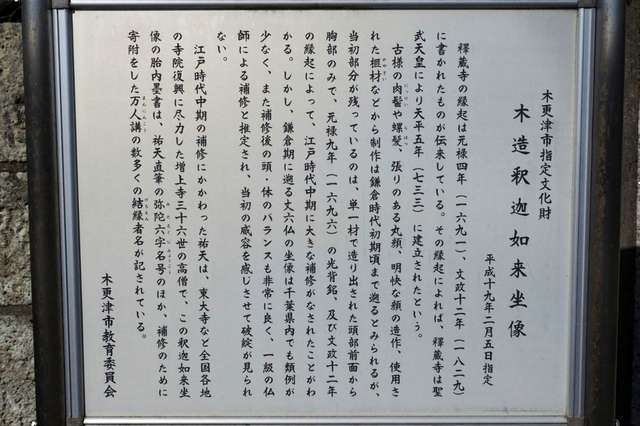 木更津市指定文化財
木造釈迦如来坐像
平成十九年二月五日指定
釋蔵寺の縁起は元禄四年(一六九一)、文政十二年(一八二九)
に書かれたものが伝来している。その縁起によれば、釋蔵寺は聖
武天皇により天平五年(七三三)に建立されたという。
古様の肉髻や螺髪、張りのある丸顔、明快な顔の造作、使用さ
れた榧材などから制作は鎌倉時代初期頃まで遡るとみられるが、
当初部分が残っているのは、単一材で造り出された頭部前面から
胸部のみで、元禄九年(一六九六)の光背銘、及び文政十二年
の縁起によって、江戸時代中期に大きな補修がなされたことがわ
かる。しかし、鎌倉期に遡る丈六仏の坐像は千葉県内でも類例が
少なく、また補修後の頭、体のバランスも非常に良く、一級の仏
師による補修と推定され、当初の威容を感じさせて破綻が見られ
ない。
江戸時代中期の補修にかかわった祐天は、東大寺など全国各地
の寺院復興に尽力した増上寺三十六世の高僧で、この釈迦如来坐
像の胎内墨書は、祐天直筆の弥陀六字名号のほか、補修のために
寄附をした万人講の数多くの結縁者名が記されている。
木更津市教育委員会